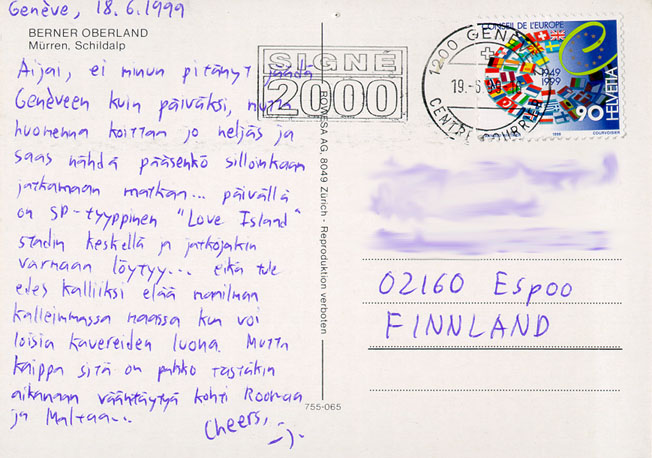 Genève, 18.6.1999
BERNER OBERLAND
Mürren, Schildalp
Aijai, ei minun pitänyt jäädä
Genèveen kuin päiväksi, mutta
huomenna koittaa jo neljäs ja
saas nähdä pääsenkö silloinkaan
jatkamaan matkaa... päivällä
on SP-tyyppinen "Love Island"
stadin keskellä ja jatkojakin
varmaan löytyy... eikä tule
edes kalliiksi elää maailman
kalleimmassa maassa kun voi
loisia kavereiden luona. Mutta
kaippa sitä on pakko tästäkin
aikanaan vääntäytyä kohti Roomaa
ja Maltaa...
Cheers, =).
755-065
ROWESA AG, 8049 Zürich · Reproduktion verboten
SIGNÉ
2000
1200 GENÈVE
19.-6.
CENTRE COURRIER
CONSEIL DE L'EUROPE
1949
1999
90
HELVETIA
COURVOISIER
02160 Espoo
FINNLAND